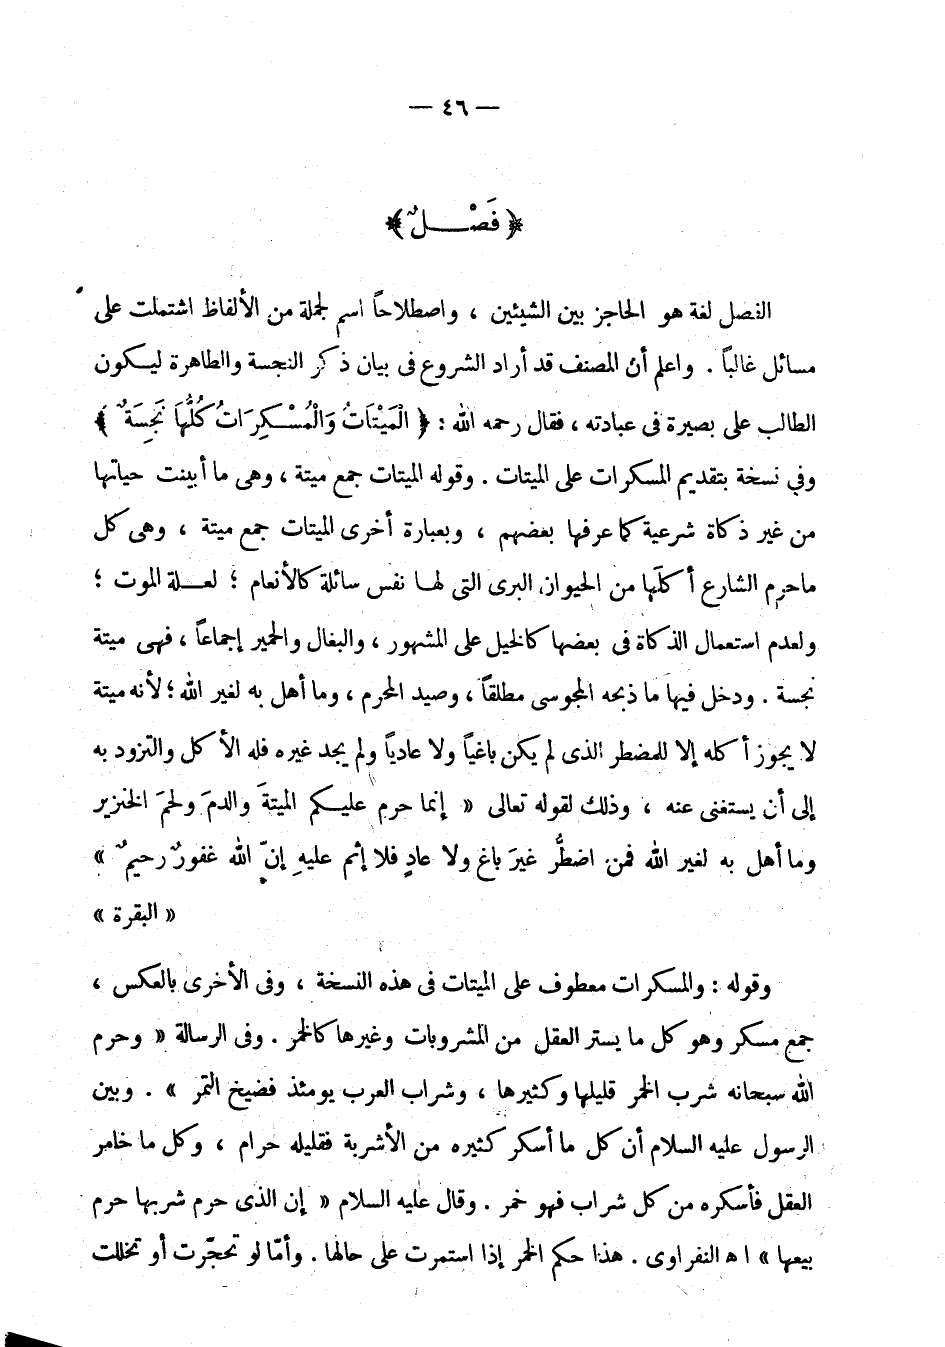 — ٤٦ —
﴿ فَصْــــلٌ ﴾
الفصل لغة هو الحاجز بين الشيئين ، واصطلاحاً اسم لجملة من الألفاظ اشتملت على
مسائل غالباً . واعلم أن المصنف قد أراد الشروع فى بيان ذكر النجسة والطاهرة ليكون
الطالب على بصيرة فى عبادته ، فقال رحمه الله : ﴿ الْمَيْتَاتُ وَالْمُسْكِرَاتُ كُلُّهَا نَجِسَةٌ ﴾
وفي نسخة بتقديم المسكرات على الميتات . وقوله الميتات جمع ميتة ، وهى ما أبينت حياتها
من غير ذكاة شرعية كما عرفها بعضهم ، وبعبارة أخرى الميتات جمع ميتة ، وهى كل
ماحرم الشارع أكلَها من الحيوان البرى التى لهـا نفس سائلة كالأنعام ؛ لعـــلة الموت ؛
ولعدم استعمال الذكاة فى بعضها كالخيل على المشهور ، والبغال والحمير إجماعاً ، فهى ميتة
نجسة . ودخل فيها ما ذبحه المجوسى مطلقاً ، وصيد المحرم ، وما أهل به لغير الله ؛ لأنه ميتة
لا يجوز أكله إلا للمضطر الذى لم يكن باغياً ولا عادياً ولم يجد غيره فله الأكل والتزود به
إلى أن يستغنى عنه ، وذلك لقوله تعالى « إنما حرم عليـكم الميتةَ والدمَ ولحمَ الخنزير
وما أهل به لغير الله فمن اضطُّر غيرَ باغ ولا عادٍ فلا إثم عليهِ إنّ الله غفورٌ رحيمٌ »
« البقرة »
وقوله : والمسكرات معطوف على الميتات فى هذه النسخة ، وفى الأخرى بالعكس ،
جمع مسكر وهو كل ما يستر العقل من المشروبات وغيرها كالخمر . وفى الرسالة « وحرم
الله سبحانه شرب الخمر قليلها وكثيرها ، وشراب العرب يومئذ فضيخ التمر » . وبين
الرسول عليه السلام أن كل ما أسكر كثيره من الأشربة فقليله حرام ، وكل ما خامر
العقل فأسكره من كل شراب فهو خمر . وقال عليه السلام « إن الذى حرم شربها حرم
بيعها » ا ه النفراوى . هذا حكم الخمر إذا استمرت على حالها . وأمّا لو تحجّرت أو تخللت